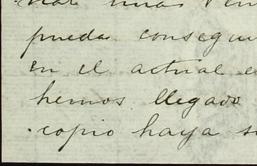 unas
pueda consegui
en el actual e
hemos llegado
copio haya s